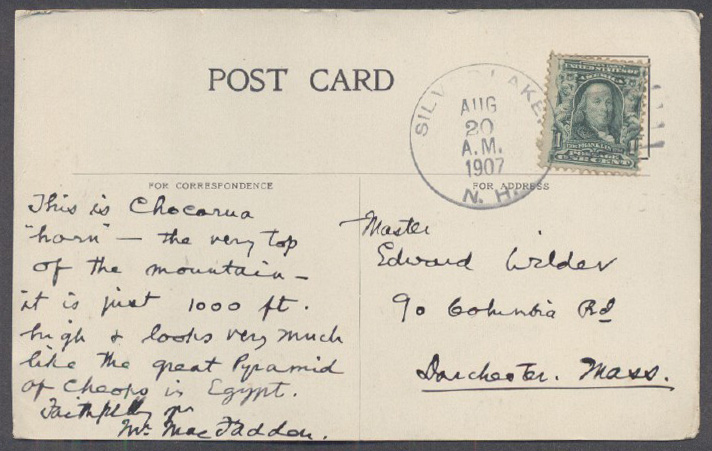 POST CARD
SILVER LAKE,
AUG
20
A.M.
1907
N. H.
UNITED STATES OF
AMERICA
FRANKLIN
POSTAGE
ONE CENT
FOR CORRESPONDENCE
FOR ADDRESS
This is Chocorua
"horn" — the very top
of the mountain —
it is just 1000 ft.
high & looks very much
like the great Pyramid
of Cheops in Egypt.
Faithfully yrs
Mr. MacFadden.
Master
Edward Wilder
90 Columbia Rd
Dorchester. Mass.